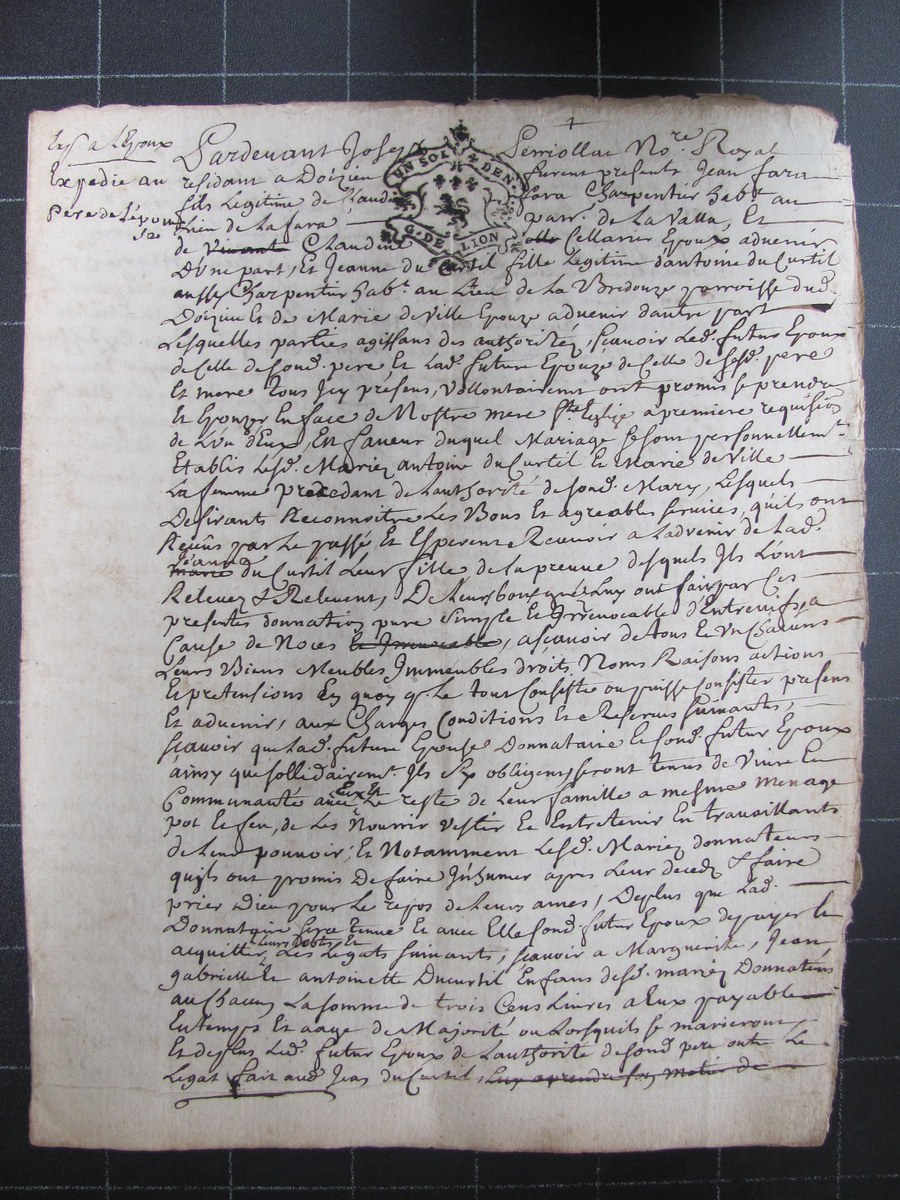 Exp a L'Epoux
Expedie au
Pere de L'epouse
UN SOL 4 DEN.
G. DE LION
Pardevant Joseph Perriollat No.re Royal
residant a Doizieu furent presents Jean fara
fils Legitime de Claude fara Charpentier habt. au
Lieu de La fara parr. de La Valla, Et
de vivante Claudine Cellarier Epoux advenir
D'une part, Et Jeanne du Curtil fille Legitime d'antoine du Curtil
aussy Charpentier habt. au Lieu de La Bredouze parroisse dud.
Doizieu Et de Marie de Ville Epouze advenir d'autre part
Lesquelles parties agissans des authoritéz, scavoir Led. futur Epoux
de Celle de sond. pere, Et Lad. future Epouze de Celle de sesd. pere
Et mere tous Icy présens, Vollontairemt. ont promis se prendre
Et Epouzer En face de Nostre mere Ste. Eglize a premiere requisition
de L'un d'Eux, En faveur duquel Mariage se sont personnellemt.
Etablis Lesd. Mariez antoine du Curtil Et Marie de Ville
La femme procedant de L'authorité de sond. Mary, Lesquels
Desirants Reconnoitre Les Bons Et agreables services, qu'ils ont
Reçûs par Le passé Et Esperent Recevoir a L'advenir de Lad.
Jeanne
marie du Curtil Leur fille de La preuve desquels Ils L'ont
Relevez & Relevent, De Leurs bons grés Luy ont fait par Ces
presentes donnation pure simple Et Irrevocable d'Entrevifs, a
Cause de Noces Et Irrevocable, a scavoir de tous Et Un Chacuns
Leurs Biens Meubles Immeubles droits Noms Raisons actions
Et pretensions En quoy q. Le tout Consiste ou puisse Consister presens
Et advenir, aux Charges Conditions Et Reserves suivantes,
scavoir que Lad. future Epouse Donnataire Et sond. futur Epoux
ainsy que sollidairemt. Ils s'y obligent seront tenus de Vivre En
Eux Et
Communauté avec Le reste de Leur famille a mesme Menage
pot Et feu, de Les Nourrir Vestir Et Entretenir En travaillants
de Leur pouvoir, Et Notamment Lesd. Mariez donnateurs
quils ont promis De faire Inhumer apres Leur decedz & faire
prier Dieu pour Le repos de Leurs ames, Deplus que Lad.
Donnataire sera tenue Et avec Elle sond. futur Epoux de payer Et
Leurs Debts Et
acquitter Les Legats suivants, scavoir a Marguerite, Jean,
gabrielle Et antoinette Ducurtil Enfans desd. mariez Donnateurs
a un Chacun La somme de trois Cens Livres a Eux payable
En temps Et aage de Majorité ou Lorsquils se marieront
Et deplus Led. futur Epoux de L'authorité de sond. pere outre Le
Legat fait aud. Jean du Curtil, Luy aprendre son metier de